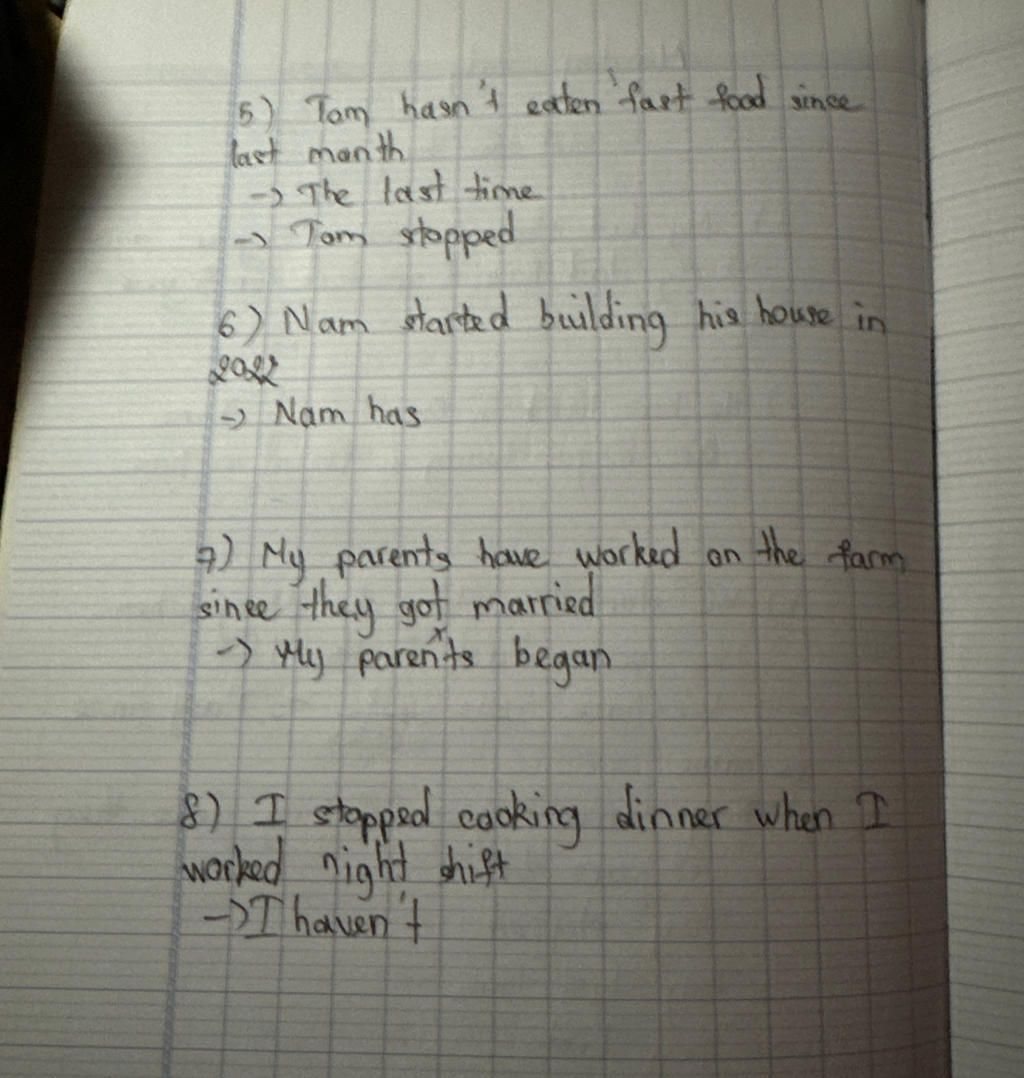 5) Tom hasn't eaten fast food since
last month
-> The last time
-> Tom stopped
6) Nam started building his house in
2022
-> Nam has
7) My parents have worked on the farm
since they got married
-> My parents began
8) I stopped cooking dinner when I
worked night shift
-> I haven't